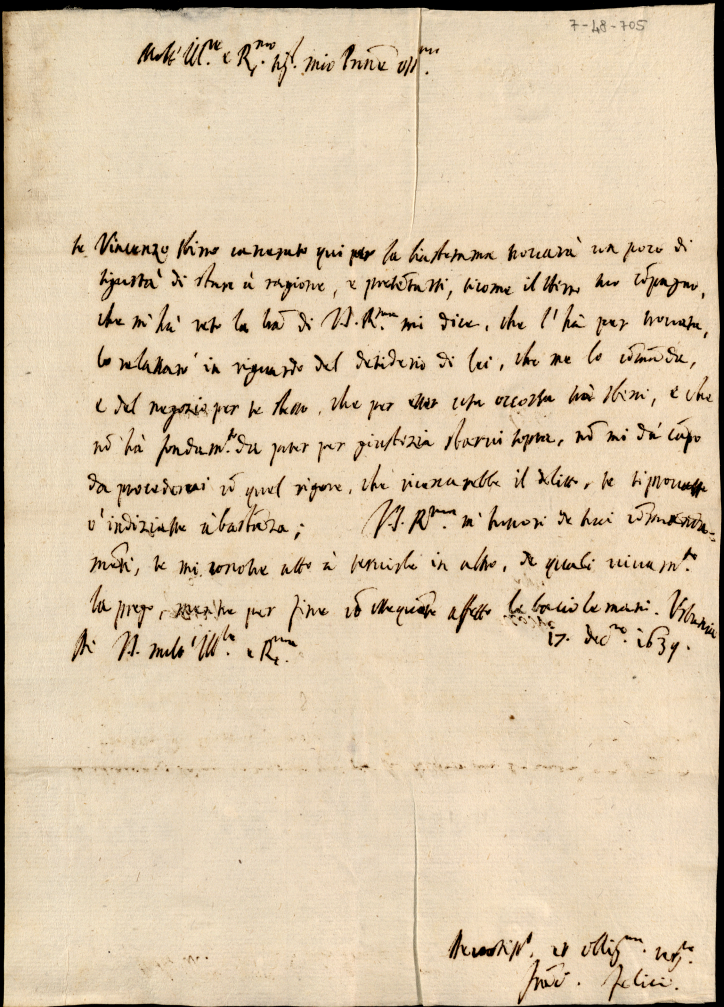 7-48-705
Molt' Ill.re e R.mo Sig.r mio Pron̄e oss.mo
Se Vincenzo sbirro carcerato qui per la biastemma trovarà un poco di
sigurtà di stare à ragione, e presentarsi, sicome il sbirro suo cōpagno,
che m'hà reso la l̄ra di V.S. R.ma mi dice, che l'hà per trovata,
lo relassarò in riguardo del desiderio di lei, che me lo comāda,
e del negozio per se stesso, che per esser cosa occorsa trà sbirri, e che
nō hà fondam.to da poter per giustizia starvi sopra, nō mi dà cāpo
da procederci cō quel rigore, che ricercarebbe il delitto, se si provasse
ò indiziasse à bastāza; V.S. R.ma m'honori de suoi comanda=
mēti, se mi conosce atto à servirla in altro, de quali vivam.te
la prego, mentre per fine cō affetto le bacio le mani. Urbania
Di V.S. molt' Ill.re e R.ma 17. Dec.re 1639.
Devotiss.o et oblig.mo ser.re
Felici.